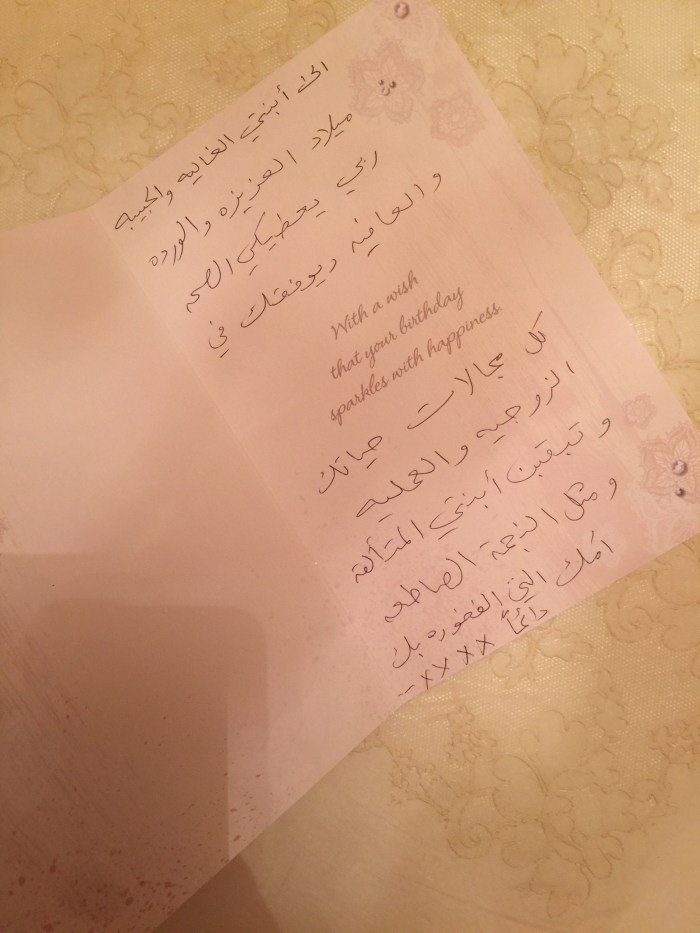 الى أبنتي الغاليه والحبيبه
ميلاد العزيزه والورده
ربي يعطيكي الصحه
والعافيه ويوفقك في
With a wish
that your birthday
sparkles with happiness.
كل مجالات حياتك
الزوجيه والعمليه
وتبقين أبنتي المتألقه
ومثل النجمة الصاطعه
أمك التي الفخوره بك
دائماً xxxx--